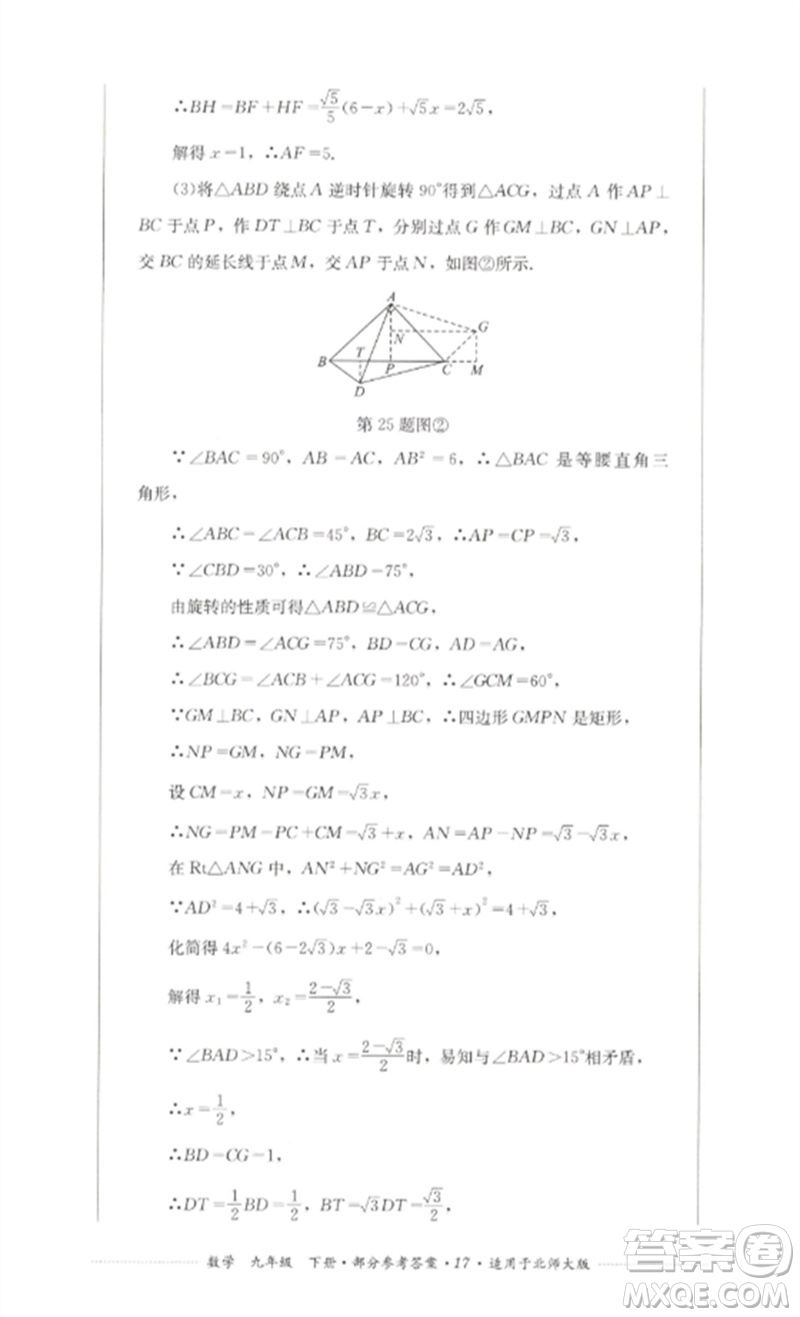 ∴BH=BF+HF=√5/5(6-x)+√5x=2√5,
解得x=1,∴AF=5.
(3)将△ABD绕点A逆时针旋转90°得到△ACG,过点A作AP⊥
BC于点P,作DT⊥BC于点T,分别过点G作GM⊥BC,GN⊥AP,
交BC的延长线于点M,交AP于点N,如图②所示.
A
G
N
B
T
P
C
M
D
第25题图②
∵∠BAC=90°,AB=AC,AB²=6,∴△BAC是等腰直角三
角形,
∴∠ABC=∠ACB=45°,BC=2√3,∴AP=CP=√3,
∵∠CBD=30°,∴∠ABD=75°,
由旋转的性质可得△ABD≌△ACG,
∴∠ABD=∠ACG=75°,BD=CG,AD=AG,
∴∠BCG=∠ACB+∠ACG=120°,∴∠GCM=60°,
∵GM⊥BC,GN⊥AP,AP⊥BC,∴四边形GMPN是矩形,
∴NP=GM,NG=PM,
设CM=x,NP=GM=√3x,
∴NG=PM=PC+CM=√3+x,AN=AP-NP=√3-√3x,
在Rt△ANG中,AN²+NG²=AG²=AD²,
∵AD²=4+√3,∴(√3-√3x)²+(√3+x)²=4+√3,
化简得4x²-(6-2√3)x+2-√3=0,
解得x₁=1/2,x₂=(2-√3)/2,
∵∠BAD>15°,∴当x=(2-√3)/2时,易知与∠BAD>15°相矛盾,
∴x=1/2,
∴BD=CG=1,
∴DT=1/2BD=1/2,BT=√3DT=√3/2,
数学 九年级 下册·部分参考答案·17·适用于北师大版
答案圈
MXQE.COM